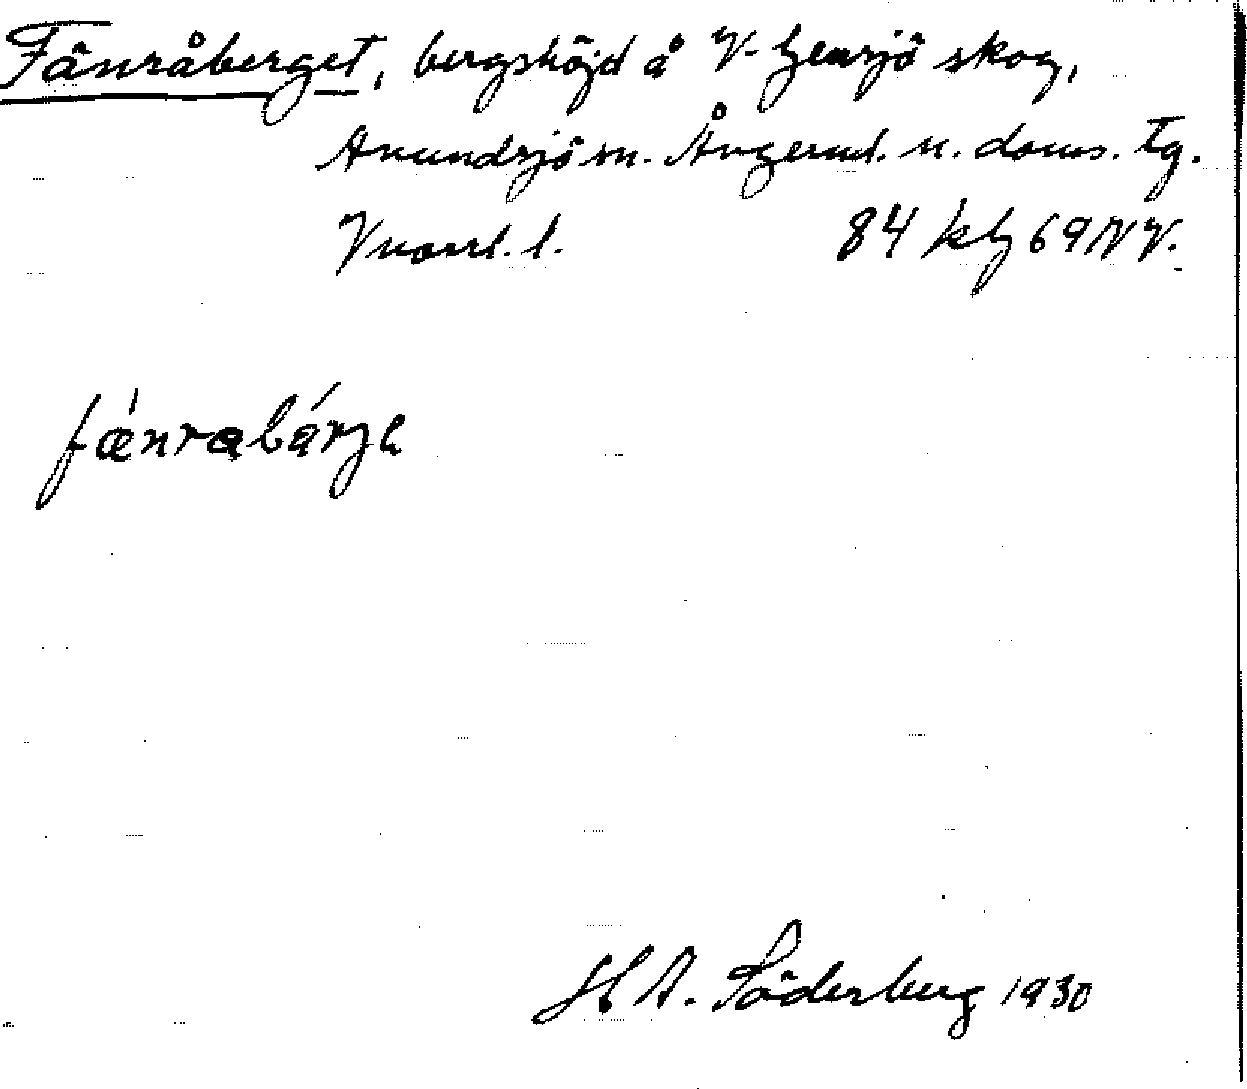 Fänråberget, bergshöjd å V. Gensjö skog,
Anundsjö sn. Ångerml. n. doms. tg.
Vnorrl. l. 84 klg 69 NV.
fǽnrabárge
H A. Söderberg 1930